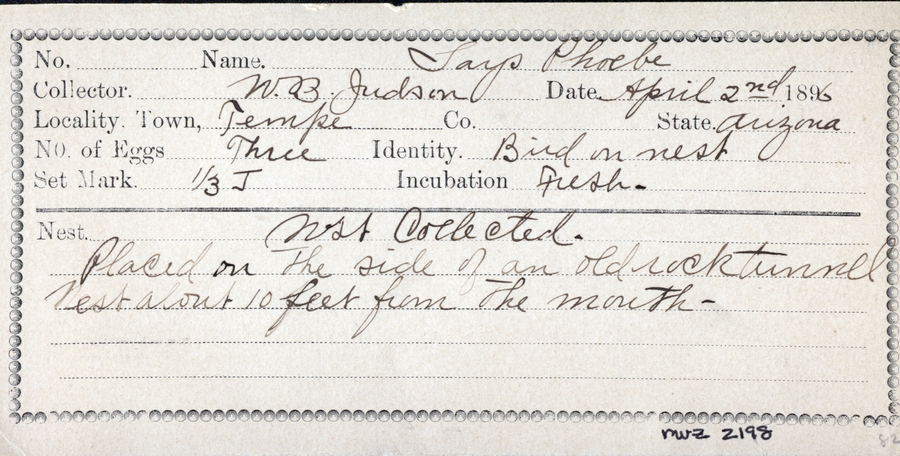 No. Name. Says Phoebe
Collector. W.B. Judson Date. April 2nd 1896
Locality. Town, Tempe Co. State. Arizona
NO. of Eggs Three Identity. Bird on nest
Set Mark. 1/3 J Incubation Fresh-
Nest. Not Collected.
Placed on the side of an old rock tunnel
Nest about 10 feet from the mouth-
MVZ 2198